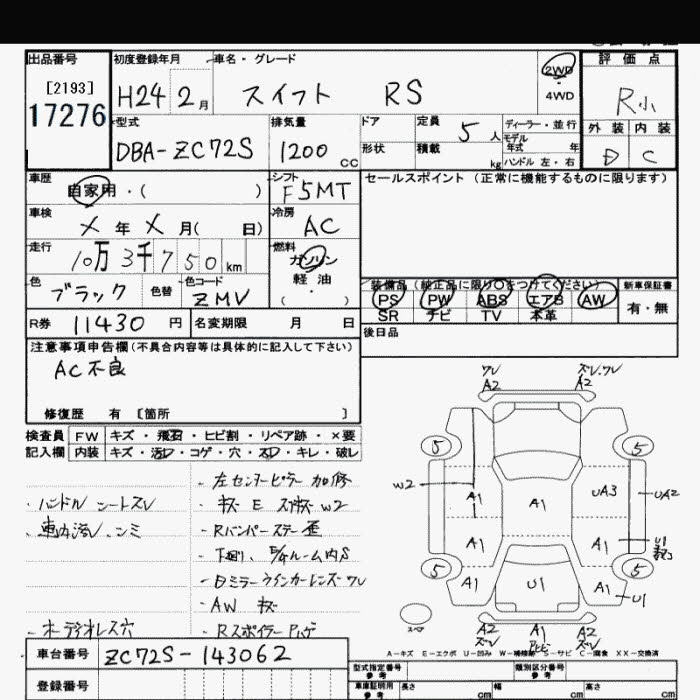 出品番号 初度登録年月 車名・グレード 2WD 評価点
[2193] H24 2月 スイフト RS 4WD R小
17276 型式 排気量 ドア 定員 5人 ディーラー・並行 外装 内装
DBA-ZC72S 1200cc 形状 積載 kg モデル年式 年 D C
ハンドル 左・右
車歴 自家用・( ) シフト F5MT セールスポイント (正常に機能するものに限ります)
車検 メ年メ月( 日) 冷房 AC
走行 10万3千750km 燃料 ガソリン
軽油
( )
色 ブラック 色替 色コード ZMV 装備品 (純正品に限り○をつけてください) 新車保証書
PS PW ABS エアB AW 有・無
SR ナビ TV 本革
R券 11430円 名変期限 月 日 後日品
注意事項申告欄(不具合内容等は具体的に記入して下さい)
AC不良
修復歴 有 〔箇所 〕
検査員 FW キズ・飛石・ヒビ割・リペア跡・×要
記入欄 内装 キズ・汚レ・コゲ・穴・スレ・キレ・破レ
・左センターピラー加修
・ハンドル シートスレ
・キズ E スリキズ W2
・Rバンパーステー歪
・下廻り、
・AW キズ
・オーディオレス穴
A2 A2
5 5
W2 A1 A1 UA3 UA2
A1 A1 U1
5 5
A1 U1 A1 U1
A2 A1 A2
A-キズ E-エクボ U-凹み W-補修跡 S-サビ C-腐食 XX-交換済
車台番号 ZC72S-143062
登録番号
型式指定番号 参考 類別区分番号 参考
車庫証明用 参考 長さ cm 幅 cm 高さ cm